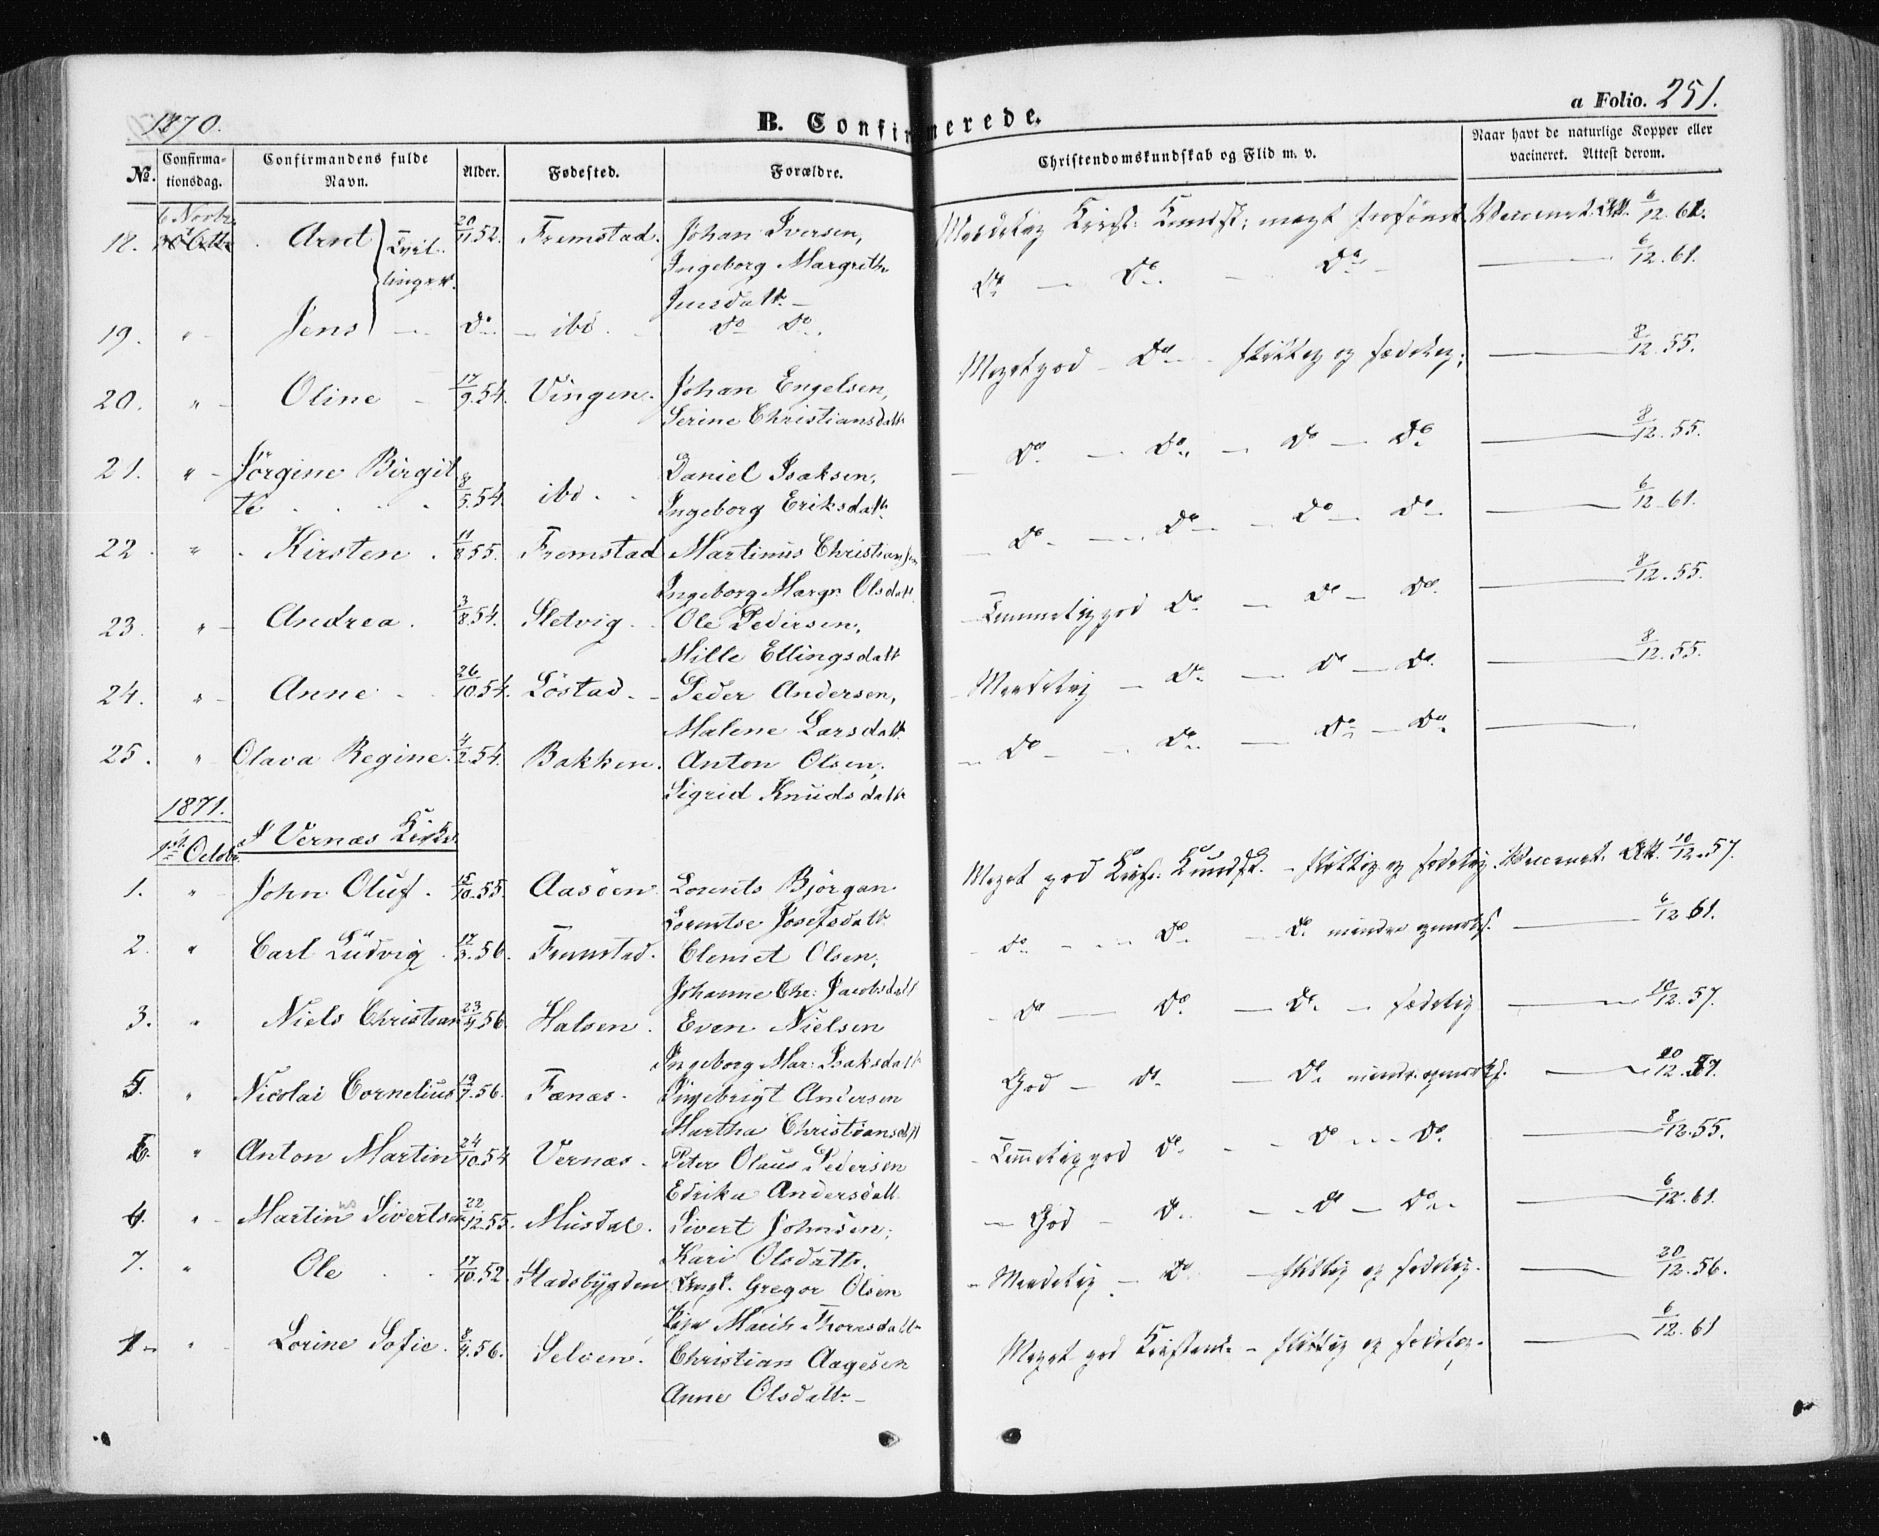 1870.
B. Confirmerede.
a Folio. 251.
No. Confirmationsdag. Confirmandens fulde Navn. Alder. Fødested. Forældre. Christendomskundskab og Flid m. v. Naar havt de naturlige Kopper eller vacineret. Attest derom.
18. 6 Novbr. Arnt 20/11 52. Fremstad. Johan Iversen, 6/12. 61.
Ingeborg Margrethe Do Do Do 6/12. 61.
Jensdatt.
19. " Jens Do ibd. Do Do
Meget god Do flittig og sædelig; 8/12. 55.
20. " Oline 17/9 54. Vingen. Johan Engelsen,
Serine Christiansdatt. Do Do Do Do 8/12. 55.
21. " Jörgine Birgit Daniel Isaksen,
te 8/5 54. ibd. Ingeborg Eriksdatt. Do Do Do Do 6/12 61.
22. " Kirsten 11/8 55. Fremstad Martinus Christiansen
Ingeborg Margr. Olsdatt. Temmelig god Do Do Do 8/12. 55.
23. " Andrea. 3/8 54. Sletvig. Ole Pedersen,
Mille Ellingsdatt Maadelig Do Do Do 8/12. 55.
24. " Anne 26/10 54. Löstad. Peder Andersen,
Malene Larsdatt. Do Do Do Do
25. " Olava Regine. 4/2 54. Bakken. Anton Olsen,
Sigrid Knudsdatt.
1871.
1ste Octobr. I Vernæs Kirke
1. " John Oluf. 15/10 55. Aasöen Lorents Bjørgan Meget god Krist. Kundsk. flittig og sædelig. Vaccinet. Att. 10/12 57.
Lorentse Josefsdatt
2. " Carl Ludvig. 17/3 56. Fremstad. Clemet Olsen, Do Do Do mindre 6/12 61.
Johanne Chr. Jacobsdatt
3. " Niels Christian 23/4 56. Halsen. Even Nielsen Do Do Do sædelig 10/12. 57.
Ingeborg Mar. Isaksdatt
5. " Nicolai Cornelius 19/7 56. Fænæs. Ingebrigt Andersen God Do Do mindre 10/12. 57.
Martha Christiansdatt
6. " Anton Martin 24/10 54 Vernæs. Peter Olaus Pedersen Temmelig god Do Do Do 8/12. 55.
Edrika Andersdatt
4. " Martin Sivertsen 22/12 55. Musdal. Sivert Johnsen, God Do Do Do 6/12. 61.
Kari Olsdatt.
7. " Ole 17/10 52. Stadsbygden Ungk. Gregor Olsen Maadelig Do flittig og sædelig. 20/12. 56.
Thoresdatt.
1. " Lorine Sofie. 8/4 56. Selven. Christian Aagesen Meget god Kristend. flittig og sædelig. 6/12. 61
Anne Olsdatt.